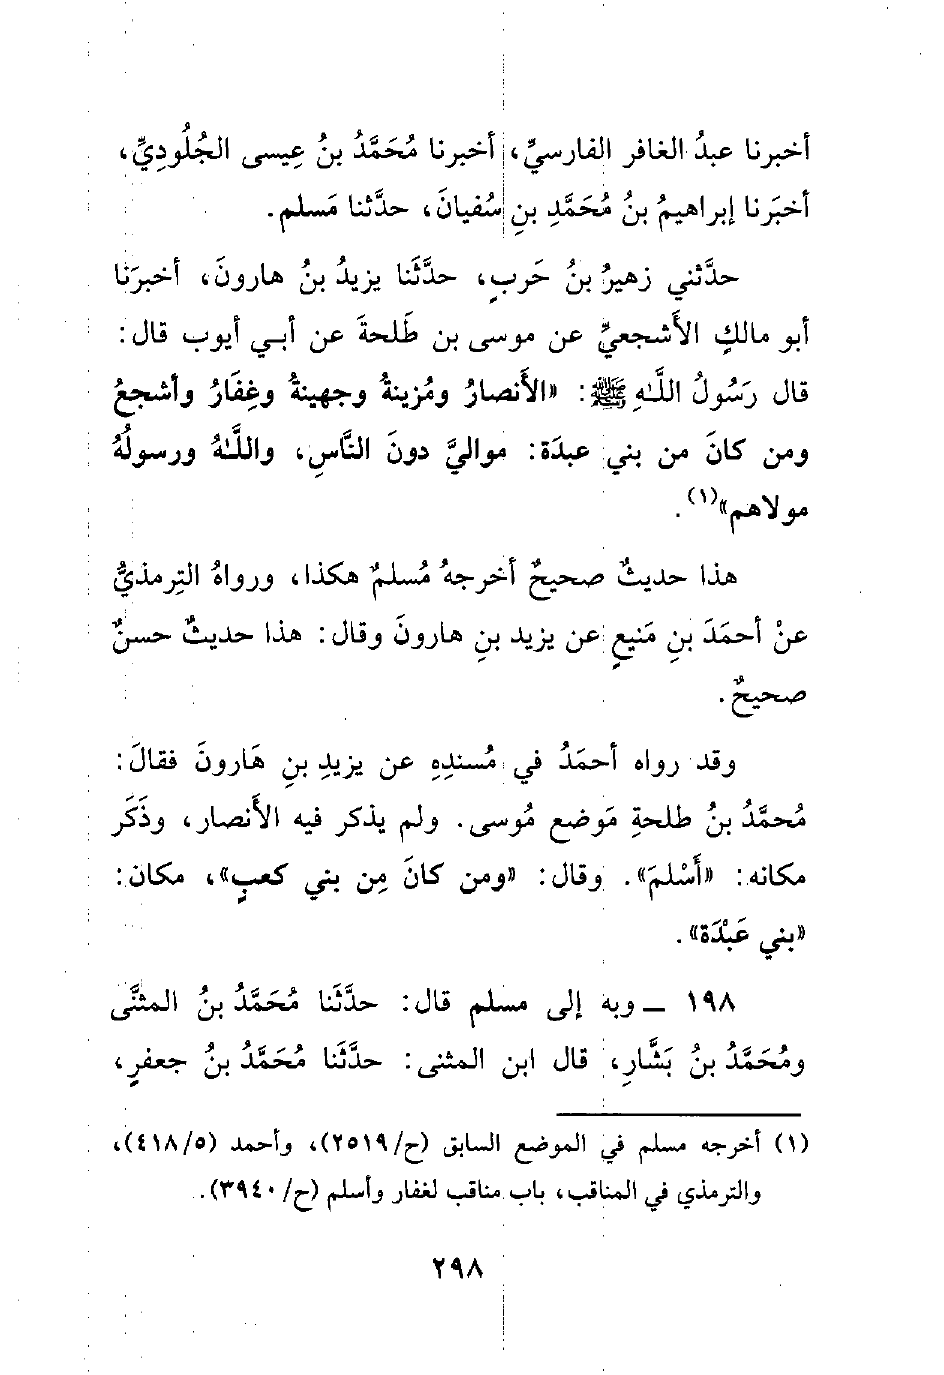 أخبرنا عبدُ الغافر الفارسيِّ، أخبرنا مُحَمَّدُ بنُ عِيسى الجُلُودِيِّ،
أخبَرنا إبراهيمُ بنُ مُحَمَّدِ بنِ سُفيانَ، حدَّثنا مَسلم.
حدَّثني زهيرُ بنُ حَربٍ، حدَّثَنا يزيدُ بنُ هارونَ، أخبرَنا
أبو مالكٍ الأَشجعيِّ عن موسى بن طَلحةَ عن أبي أيوب قال:
قال رَسُولُ اللَّهِ ﷺ: «الأَنصارُ ومُزينةُ وجهينةُ وغِفَارُ وأشجعُ
ومن كانَ من بني عبدَة: مواليَّ دونَ النَّاسِ، واللَّهُ ورسولُهُ
مولاهم»(١).
هذا حديثٌ صحيحٌ أخرجهُ مُسلمٌ هكذا، ورواهُ التِرمذيُّ
عنْ أحمَدَ بنِ مَنيعٍ عن يزيد بنِ هارونَ وقال: هذا حديثٌ حسنٌ
صحيحٌ.
وقد رواه أحمَدُ في مُسندِهِ عن يزيدِ بنِ هَارونَ فقالَ:
مُحمَّدُ بنُ طلحةِ مَوضع مُوسى. ولم يذكر فيه الأنصار، وذَكَر
مكانه: «أَسْلمَ». وقال: «ومن كانَ مِن بني كعبٍ»، مكان:
«بني عَبْدَة».
١٩٨ ـ وبه إلى مسلم قال: حدَّثَنا مُحَمَّدُ بنُ المثنَّى
ومُحَمَّدُ بنُ بَشَّارِ، قال ابن المثنى: حدَّثَنا مُحَمَّدُ بنُ جعفرٍ،
(١) أخرجه مسلم في الموضع السابق (ح/٢٥١٩)، وأحمد (٤١٨/٥)،
والترمذي في المناقب، باب مناقب لغفار وأسلم (ح/٣٩٤٠).
٢٩٨